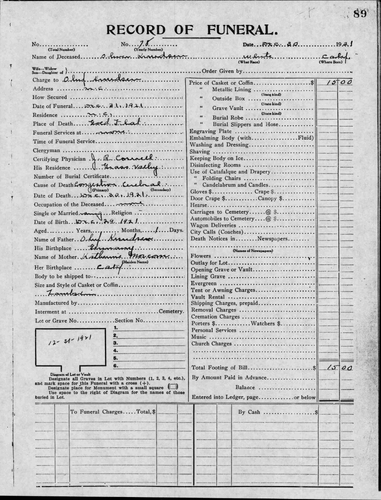 89
RECORD OF FUNERAL.
No. No. 78 Date Dec 20 1921
(Total Number) (Yearly Number)
Name of Deceased Oliver Knudsen White Calif
(What Race) (Where Born)
Charge to Oluf Knudsen Order Given by
Address N. C. Price of Casket or Coffin $ 15 00
How Secured " Metallic Lining
Date of Funeral Dec. 21. 1921 " Outside Box
Residence N. C. " Grave Vault
Place of Death Gold Flat " Burial Robe
Funeral Services at none " Burial Slippers and Hose
Time of Funeral Services Engraving Plate
Clergyman Embalming Body (with Fluid)
Certifying Physician J. R. Washing and Dressing
His Residence Grass Valley Shaving
Number of Burial Certificate Keeping Body on Ice
Cause of Death Congestion Cerebral Disinfecting Rooms
(Primary) (Secondary) Use of Catafalque and Drapery
Date of Death Dec. 20. 1921 " Folding Chairs
Occupation of the Deceased none " Candelabrum and Candles
Single or Married Religion Gloves $ Crape $
Date of Birth Dec. 1921 Door Crape $ Canopy $
Aged Years, Months, 1 Days Hearse
Name of Father Olif Knudsen Carriages to Cemetery @ $
His Birthplace Germany Automobiles to Cemetery @ $
Name of Mother Katherine Wagon Deliveries
(Maiden Name) City Calls (Coaches)
Her Birthplace Calif Death Notices in Newspapers
Body to be shipped to Flowers
Size and Style of Casket or Coffin Outlay for Lot
Opening Grave or Vault
Manufactured by Lining Grave
Interment at Cemetery Evergreen
Lot or Grave No. Section No. Tent or Awning Charges
Vault Rental
1. Shipping Charges, prepaid
2. Removal Charges
12-21-1921 3. Cremation Charges
4. Porters $ Watchers $
5. Personal Services
6. Music
Church Charges
Diagram of Lot or Vault
Designate all Graves in Lot with Numbers (1, 2, 3, 4, etc.), Total Footing of Bill $ 15 00
and mark space for this Funeral with a cross (+). By Amount Paid in Advance
Designate place for Monument with a small square Balance
Use space to the right of Diagram for the names of those Entered into Ledger, page or below
buried in Lot.
To Funeral Charges Total, $ By Cash $